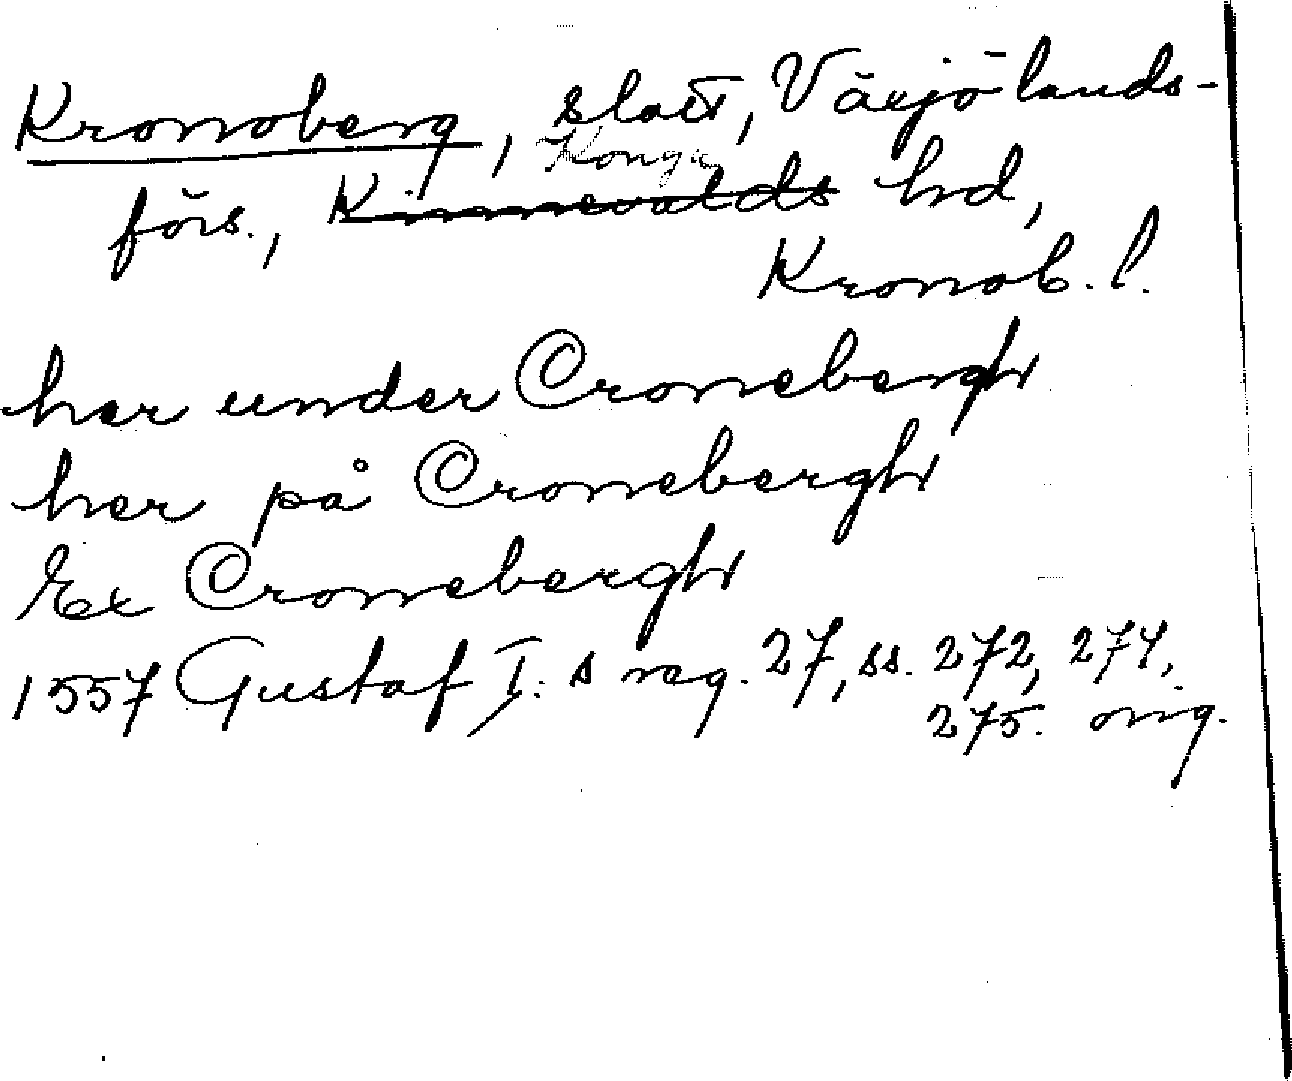 Kronoberg, slott, Växjö lands-
förs., Konga Kinnevalds hd,
Kronob. l.
her under Cronebergh
her på Cronebergh
Ex Cronebergh
1557 Gustaf I:s reg. 27, ss. 272, 274,
275. orig.